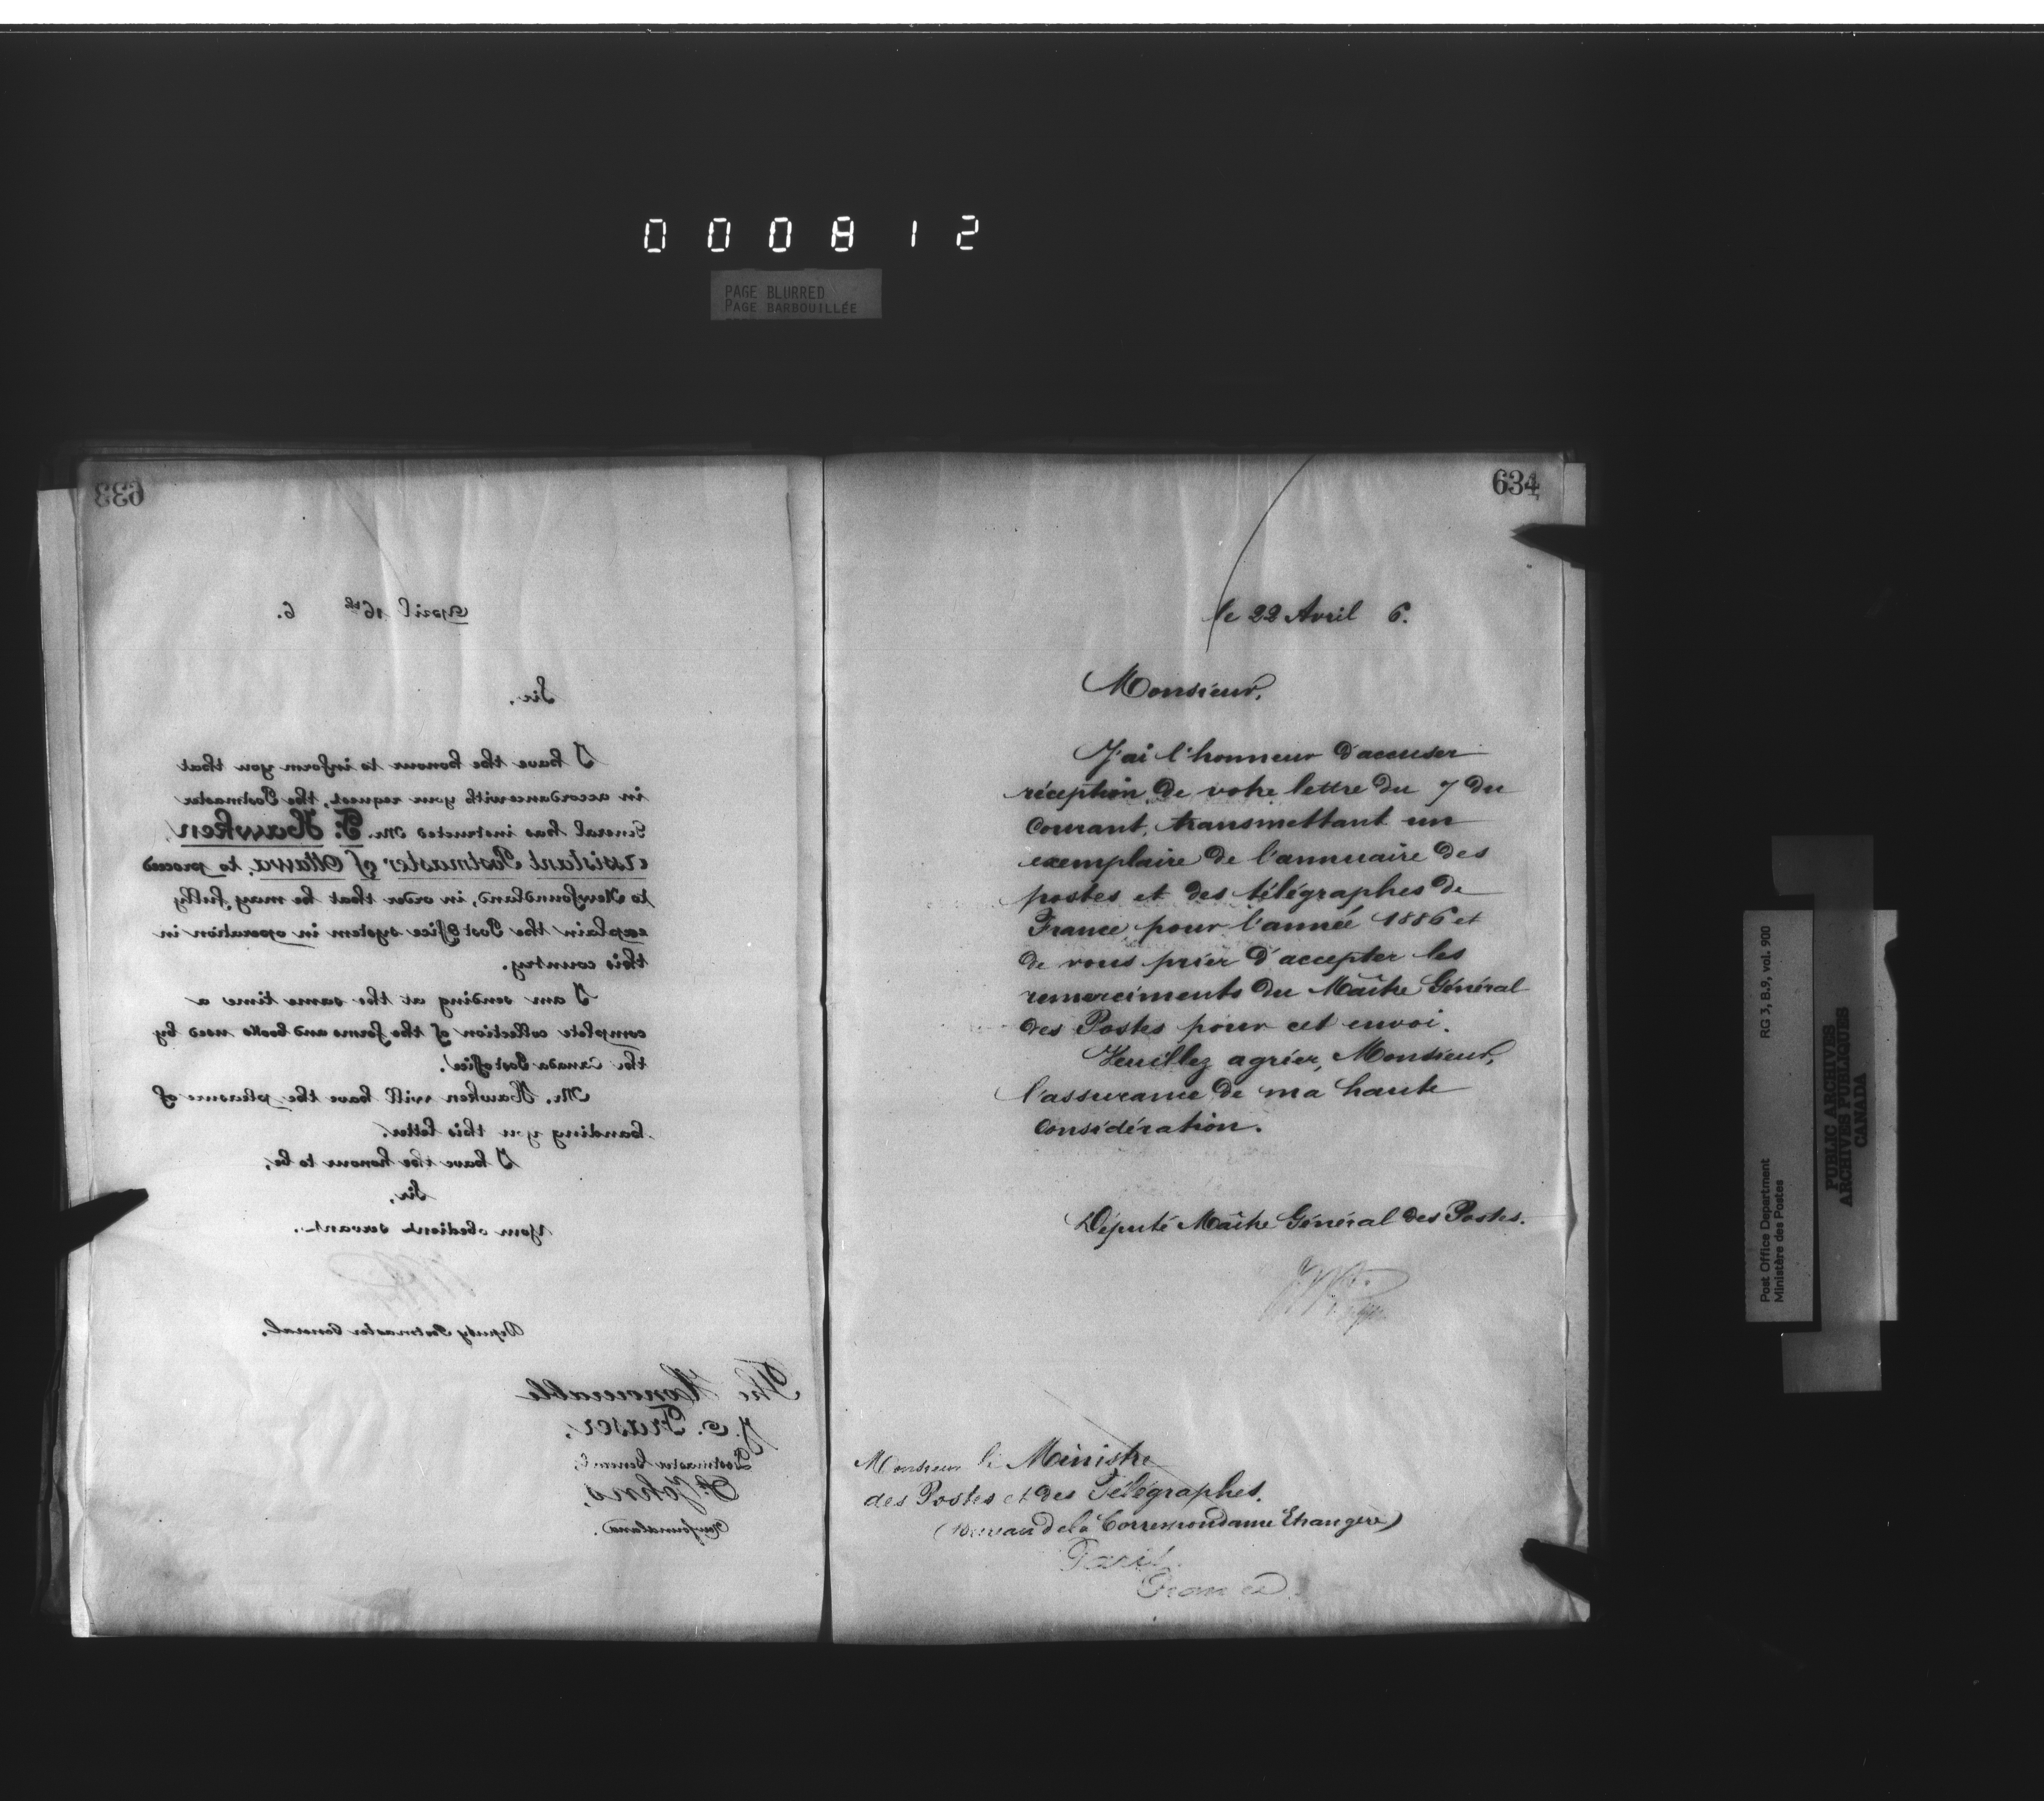 000812
PAGE BLURRED
PAGE BARBOUILLÉE
633
April 16th 6.
Sir,
I have the honour to inform you that
in accordance with your request, the Postmaster
General has instructed Mr. F. Hawken,
assistant Postmaster of Ottawa, to proceed
to Newfoundland, in order that he may fully
explain the Post Office system in operation in
this country.
I am sending at the same time a
complete collection of the forms and books used by
the Canada Post office.
Mr. Hawken will have the pleasure of
handing you this letter.
I have the honour to be,
Sir,
Your obedient servant.
Deputy Postmaster General.
The Honourable
J. O. Fraser,
Postmaster General,
St. Johns,
Newfoundland.
634
le 22 Avril 6.
Monsieur,
J'ai l'honneur d'accuser
réception de votre lettre du 7 du
Courant, transmettant un
exemplaire de l'annuaire des
postes et des télégraphes de
France, pour l'année 1886 et
de vous prier d'accepter les
remerciments du Maître Général
des Postes pour cet envoi.
Veuillez agréer, Monsieur,
l'assurance de ma haute
Considération.
Député Maître Général des Postes.
Monsieur le Ministre
des Postes et des Télégraphes.
(Bureau de la Correspondance Etrangère)
Paris.
France.
Post Office Department RG 3, B.9, vol. 900
Ministère des Postes
PUBLIC ARCHIVES
ARCHIVES PUBLIQUES
CANADA